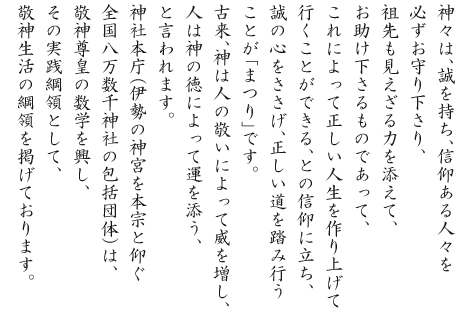 神々は、誠を持ち、信仰ある人々を
必ずお守り下さり、
祖先も見えざる力を添えて、
お助け下さるものであって、
これによって正しい人生を作り上げて
行くことができる、との信仰に立ち、
誠の心をささげ、正しい道を踏み行う
ことが「まつり」です。
古来、神は人の敬いによって威を増し、
人は神の徳によって運を添う、
と言われます。
神社本庁(伊勢の神宮を本宗と仰ぐ
全国八万数千神社の包括団体)は、
敬神尊皇の教学を興し、
その実践綱領として、
敬神生活の綱領を掲げております。